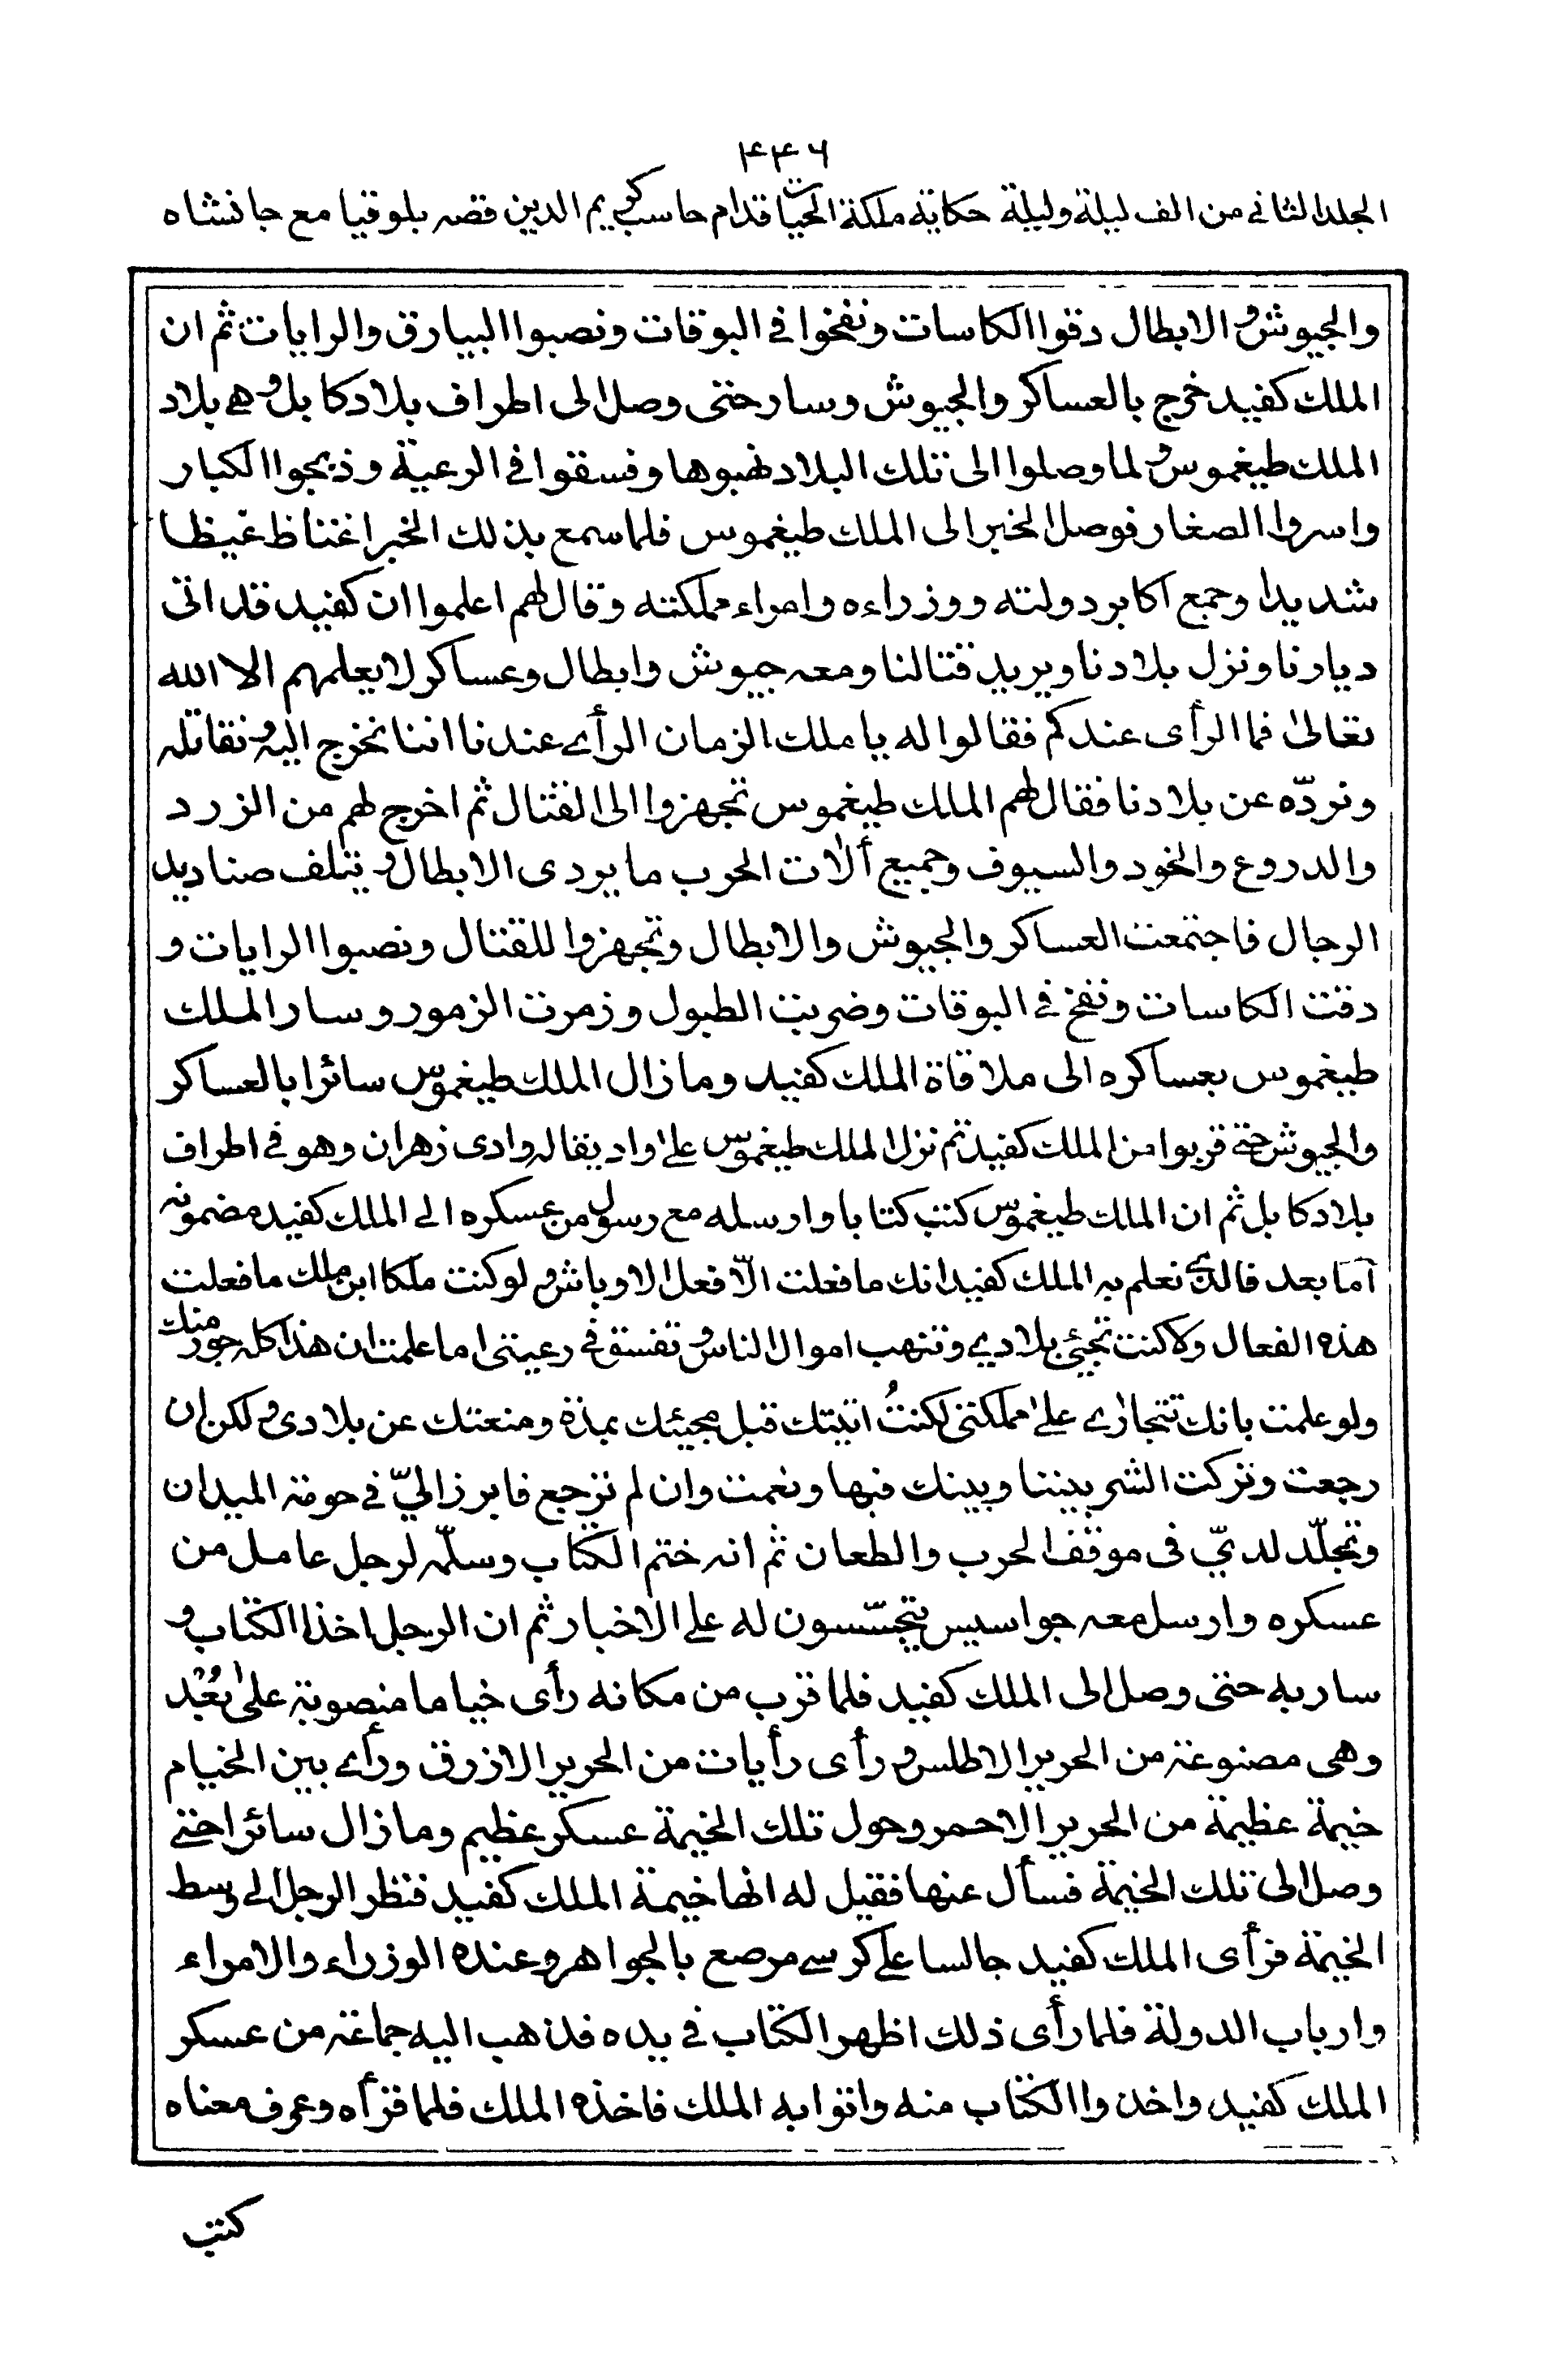 ۴۴۶
الجلد الثاني من الف ليلة وليلة حكاية ملكة الحيات قدام حاسب كريم الدين قصه بلوقيا مع جانشاه
والجيوش و الابطال دقوا الكاسات ونفخوا في البوقات ونصبوا البيارق والرايات ثم ان
الملك كفيد خرج بالعساكر والجيوش وسار حتى وصل الى اطراف بلاد كابل و هے بلاد
الملك طيغموس و لما وصلوا الى تلك البلاد نهبوها وفسقوا في الرعية وذبحوا الكبار
واسروا الصغار فوصل الخبر الى الملك طيغموس فلما سمع بذلك الخبر اغتاظ غيظا
شديدا وجمع اكابر دولته ووزراءه وامراء مملكته وقال لهم اعلموا ان كفيد قد اتى
ديارنا ونزل بلادنا ويريد قتالنا ومعه جيوش وابطال وعساكر لا يعلمهم الا الله
تعالىٰ فما الرأى عندكم فقالوا له يا ملك الزمان الرأے عندنا اننا نخرج اليه و نقاتله
ونردّه عن بلادنا فقال لهم الملك طيغموس تجهزوا الى القتال ثم اخرج لهم من الزرد
والدروع والخود والسيوف وجميع ألات الحرب ما يردى الابطال و يتلف صناديد
الرجال فاجتمعت العساكر والجيوش والابطال وتجهزوا للقتال ونصبوا الرايات و
دقت الكاسات ونفخ في البوقات وضربت الطبول وزمرت الزمور وسار الملك
طيغموس بعساكره الى ملاقاة الملك كفيد وما زال الملك طيغموس سائرا بالعساكر
والجيوش حتے قربوا من الملك كفيد ثم نزل الملك طيغموس علىٰ واد يقال له وادى زهران وهو في اطراف
بلاد كابل ثم ان الملك طيغموس كتب كتابا وارسله مع رسول من عسكره الے الملك كفيد مضمونه
اما بعد فالذے نعلم به الملك كفيد انك ما فعلت الّا فعل الاوباش و لو كنت ملكا ابن ملك ما فعلت
هذه الفعال ولا كنت تجيئ بلادے وتنهب اموال الناس و تفسق في رعيتى اما علمت ان هذا كله جور منك
ولو علمت بانك تتجارٰے علىٰ مملكتى لكنتُ اتيتك قبل مجيئك بمدة ومنعتك عن بلادى و لكن ان
رجعت وتركت الشر بيننا وبينك فبها ونعمت وان لم ترجع فابرز اليّ في حومة الميدان
وتجلّد لديّ فى موقف الحرب والطعان ثم انه ختم الكتاب وسلّمه لرجل عامل من
عسكره وارسل معه جواسيس يتجسّسون له على الاخبار ثم ان الرجل اخذ الكتاب و
سار به حتى وصل الى الملك كفيد فلما قرب من مكانه رأى خياما منصوبة علىٰ بُعْد
وهى مصنوعة من الحرير الاطلس و رأى رأيات من الحرير الازرق ورأے بين الخيام
خيمة عظيمة من الحرير الاحمر وحول تلك الخيمة عسكر عظيم وما زال سائرا حتے
وصل الى تلك الخيمة فسأل عنها فقيل له انها خيمة الملك كفيد فنظر الرجل الے وسط
الخيمة فرأى الملك كفيد جالسا علے كرسے مرصع بالجواهر وعنده الوزراء والامراء
وارباب الدولة فلما رأى ذلك اظهر الكتاب في يده فذهب اليه جماعة من عسكر
الملك كفيد واخذوا الكتاب منه واتوا به الملك فاخذه الملك فلما قرأه وعرف معناه
كتب